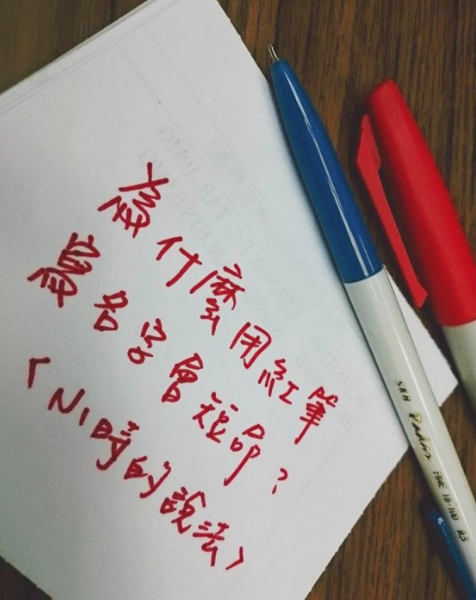 為什麼用紅筆
寫名字會短命?
〈小時的說法〉
SKB